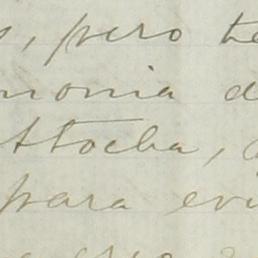 , pero te
monia d
Attocha,
para evi